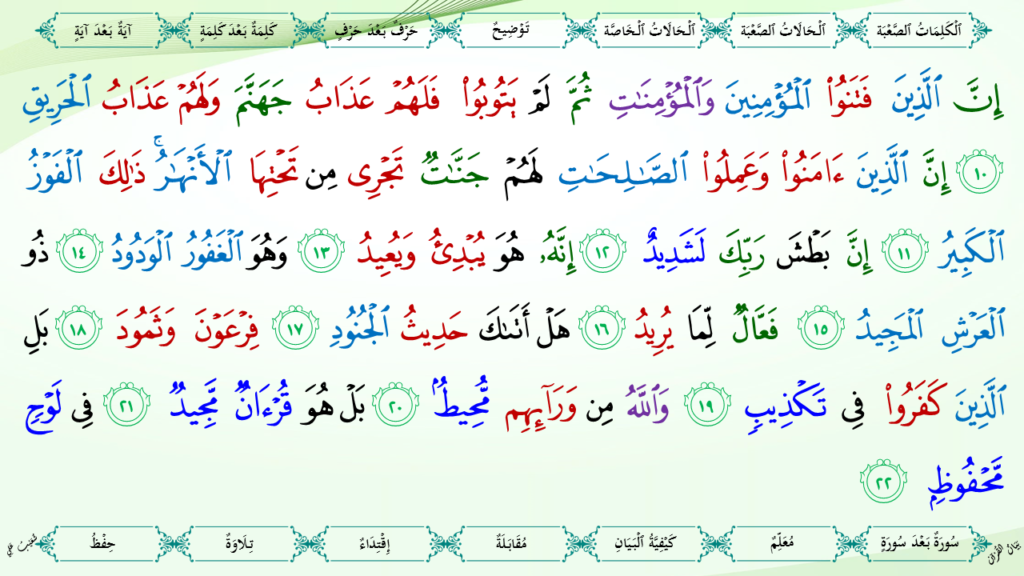 اَلْكَلِمَاتُ الصَّعْبَة اَلْحَالَاتُ الصَّعْبَة اَلْحَالَاتُ الْخَاصَّة تَوْضِيحٌ حَرْفٌ بَعْدَ حَرْفٍ كَلِمَةٌ بَعْدَ كَلِمَةٍ آيَةٌ بَعْدَ آيَةٍ
إِنَّ ٱلَّذِينَ فَتَنُوا۟ ٱلْمُؤْمِنِينَ وَٱلْمُؤْمِنَـٰتِ ثُمَّ لَمْ يَتُوبُوا۟ فَلَهُمْ عَذَابُ جَهَنَّمَ وَلَهُمْ عَذَابُ ٱلْحَرِيقِ
١٠ إِنَّ ٱلَّذِينَ ءَامَنُوا۟ وَعَمِلُوا۟ ٱلصَّـٰلِحَـٰتِ لَهُمْ جَنَّـٰتٌ تَجْرِى مِن تَحْتِهَا ٱلْأَنْهَـٰرُ ۚ ذَٰلِكَ ٱلْفَوْزُ
ٱلْكَبِيرُ ١١ إِنَّ بَطْشَ رَبِّكَ لَشَدِيدٌ ١٢ إِنَّهُۥ هُوَ يُبْدِئُ وَيُعِيدُ ١٣ وَهُوَ ٱلْغَفُورُ ٱلْوَدُودُ ١٤ ذُو
ٱلْعَرْشِ ٱلْمَجِيدُ ١٥ فَعَّالٌ لِّمَا يُرِيدُ ١٦ هَلْ أَتَىٰكَ حَدِيثُ ٱلْجُنُودِ ١٧ فِرْعَوْنَ وَثَمُودَ ١٨ بَلِ
ٱلَّذِينَ كَفَرُوا۟ فِى تَكْذِيبٍ ١٩ وَٱللَّهُ مِن وَرَآئِهِم مُّحِيطٌۢ ٢٠ بَلْ هُوَ قُرْءَانٌ مَّجِيدٌ ٢١ فِى لَوْحٍ
مَّحْفُوظٍۭ ٢٢
سُورَةٌ بَعْدَ سُورَةٍ مُعَلِّمٌ كَيْفِيَّةُ الْبَيَانِ مُقَابَلَةٌ إِقْتِدَاءٌ تِلَاوَةٌ حِفْظُ